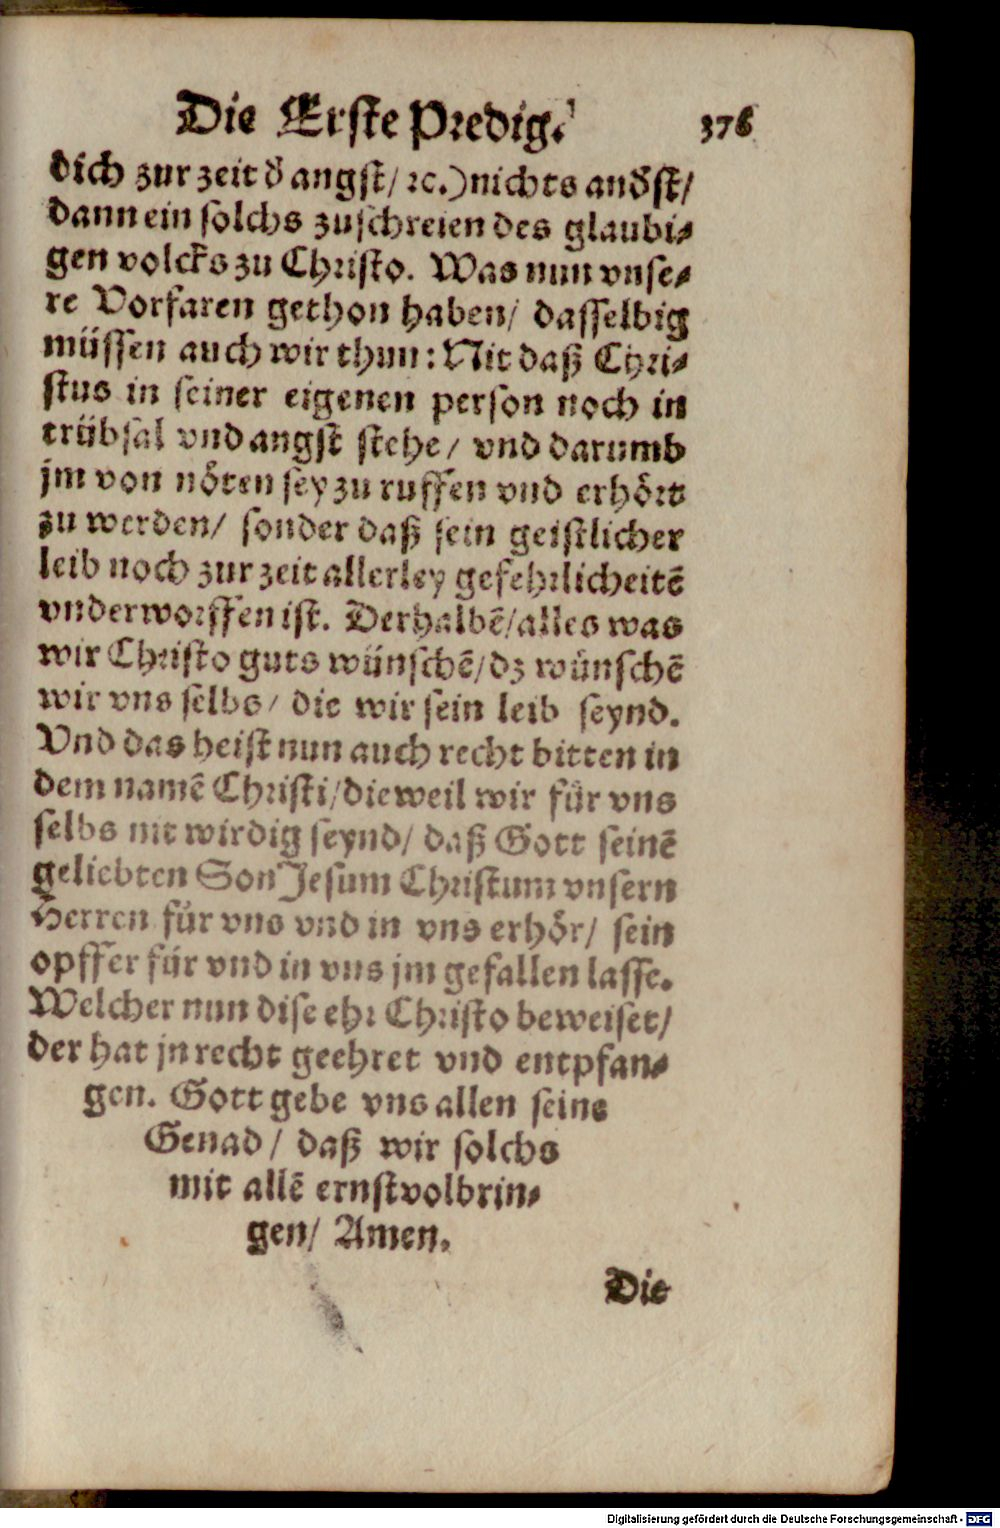 Die Erste Predig. 376
dich zur zeit d̃ angst/ ꝛc.) nichts and̃st/
dann ein solchs zuschreien des glaubi-
gen volcks zu Christo. Was nun vnse-
re Vorfaren gethon haben/ dasselbig
müssen auch wir thun: Nit daß Chri-
stus in seiner eigenen person noch in
trübsal vnd angst stehe/ vnd darumb
jm von nöten sey zu ruffen vnd erhört
zu werden/ sonder daß sein geistlicher
leib noch zur zeit allerley gefehrlicheitē
vnderworffen ist. Derhalbē/ alles was
wir Christo guts wünschē/ dz wünschē
wir vns selbs/ die wir sein leib seynd.
Vnd das heist nun auch recht bitten in
dem namē Christi/ dieweil wir für vns
selbs nit wirdig seynd/ daß Gott seinē
geliebten Son Jesum Christum vnsern
Herren für vns vnd in vns erhör/ sein
opffer für vnd in vns jm gefallen lasse.
Welcher nun dise ehr Christo beweiset/
der hat jn recht geehret vnd entpfan-
gen. Gott gebe vns allen seine
Genad/ daß wir solchs
mit allē ernst volbrin-
gen/ Amen.
Die
Digitalisierung gefördert durch die Deutsche Forschungsgemeinschaft - DFG